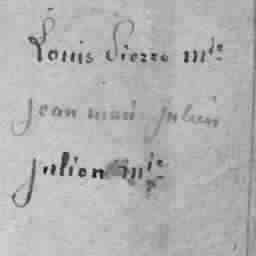 Louis Pierre mie
jean mari julien
julien mie